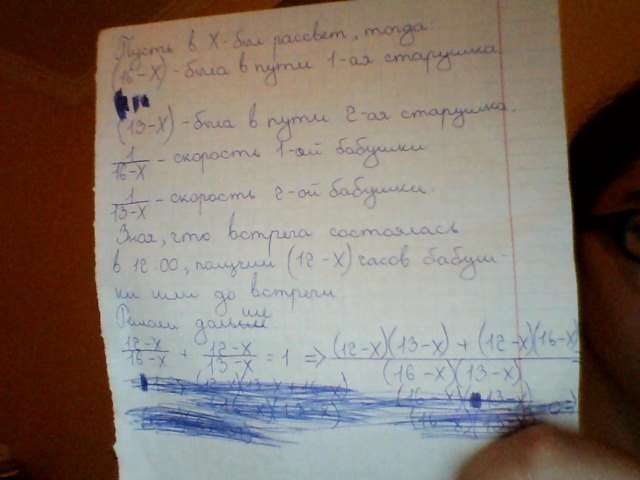 Пусть в X - был рассвет, тогда:
(16-X) - была в пути 1-ая старушка
(13-X) - была в пути 2-ая старушка.
1/(16-X) - скорость 1-ой бабушки
1/(13-X) - скорость 2-ой бабушки.
Зная, что встреча состоялась
в 12.00, получим (12-X) часов бабуш-
ки шли до встречи
Решаем дальше
(12-x)/(16-x) + (12-x)/(13-x) = 1 => ((12-x)(13-x) + (12-x)(16-x)/((16-x)(13-x)